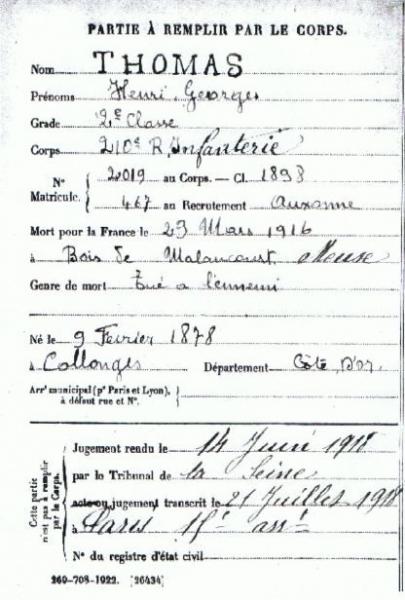 PARTIE À REMPLIR PAR LE CORPS.
Nom THOMAS
Prénoms Henri Georges
Grade 2e Classe
Corps 210e R. Infanterie
N° Matricule. { 2019 au Corps. — Cl. 1898
467 au Recrutement Auxonne
Mort pour la France le 23 Mars 1916
à Bois de Malancourt Meuse
Genre de mort Tué à l'ennemi
Né le 9 Fevrier 1878
à Collonges Département Côte D'or.
Arrt municipal (pr Paris et Lyon), à défaut rue et N°.
Cette partie n'est pas à remplir par le Corps.
Jugement rendu le 14 Juin 1918
par le Tribunal de la Seine
acte ou jugement transcrit le 21 Juillet 1918
à Paris arrt
N° du registre d'état civil
260-708-1922. [26434]